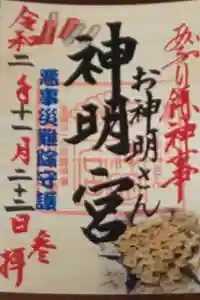 あかり御神事
お神明さん
神明宮
悪事災難除守護
令和二年十一月二十二日
参拝